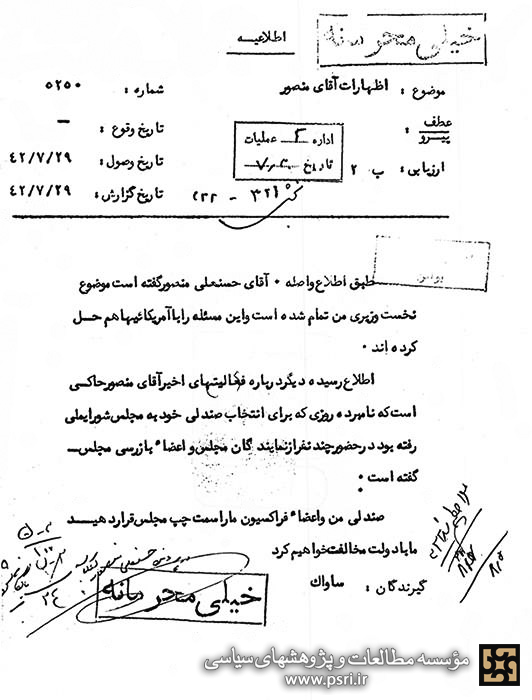 خیلی محرمانه
اطلاعیه
موضوع : اظهارات آقای منصور
شماره : ۵۲۵۰
عطف
پیرو :
تاریخ وقوع : —
اداره عملیات
تاریخ
ارزیابی : ب ۲
تاریخ وصول : ۴۲/۷/۲۹
تاریخ گزارش : ۴۲/۷/۲۹
۳۲۱ –
طبق اطلاع واصله ۰ آقای حسنعلی منصور گفته است موضوع
نخست وزیری من تمام شده است و این مسئله را با آمریکائیها هم حل
کرده اند ۰
اطلاع رسیده دیگر درباره فعالیتهای اخیر آقای منصور حاکسی
است که نامبرده روزی که برای انتخاب صندلی خود به مجلس شورایملی
رفته بود در حضور چند نفر از نمایندگان مجلس و اعضاء بازرسی مجلس
گفته است ۰
صندلی من و اعضاء فراکسیون ما را سمت چپ مجلس قرار دهید
ما با دولت مخالفت خواهیم کرد
گیرندگان : ساواك
خیلی محرمانه
مؤسسه مطالعات و پژوهشهای سیاسی
www.psri.ir